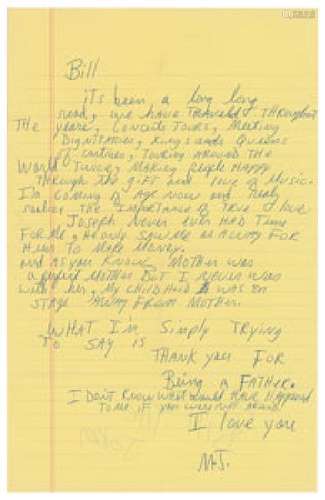 Bill
it's been a long long
road, we have traveled throughout
THE years, Concerts Tours, Meeting
DigniTaries, Kings and Queens
of Contries, Touring AROUND THE
World Twice, Making People HAPPY
Through the gift and love of Music.
I'm Coming of Age Now and Realy
realize The Importance of TRUE Love
Joseph Never even HAD Time
FOR Me, He only saw me as A WAY FOR
Him To Make Money.
and As you Know, MoTher was
a perfect Mother But I Never was
with her, My childhood was on
STAGE AWAY FROM MOTHER.
WHAT I'm Simply Trying
To SAY IS
THANK you FOR
Being A FATHER.
I Don't Know what would HAVE Happened
To Me if you were Not around
I love you
M.J.